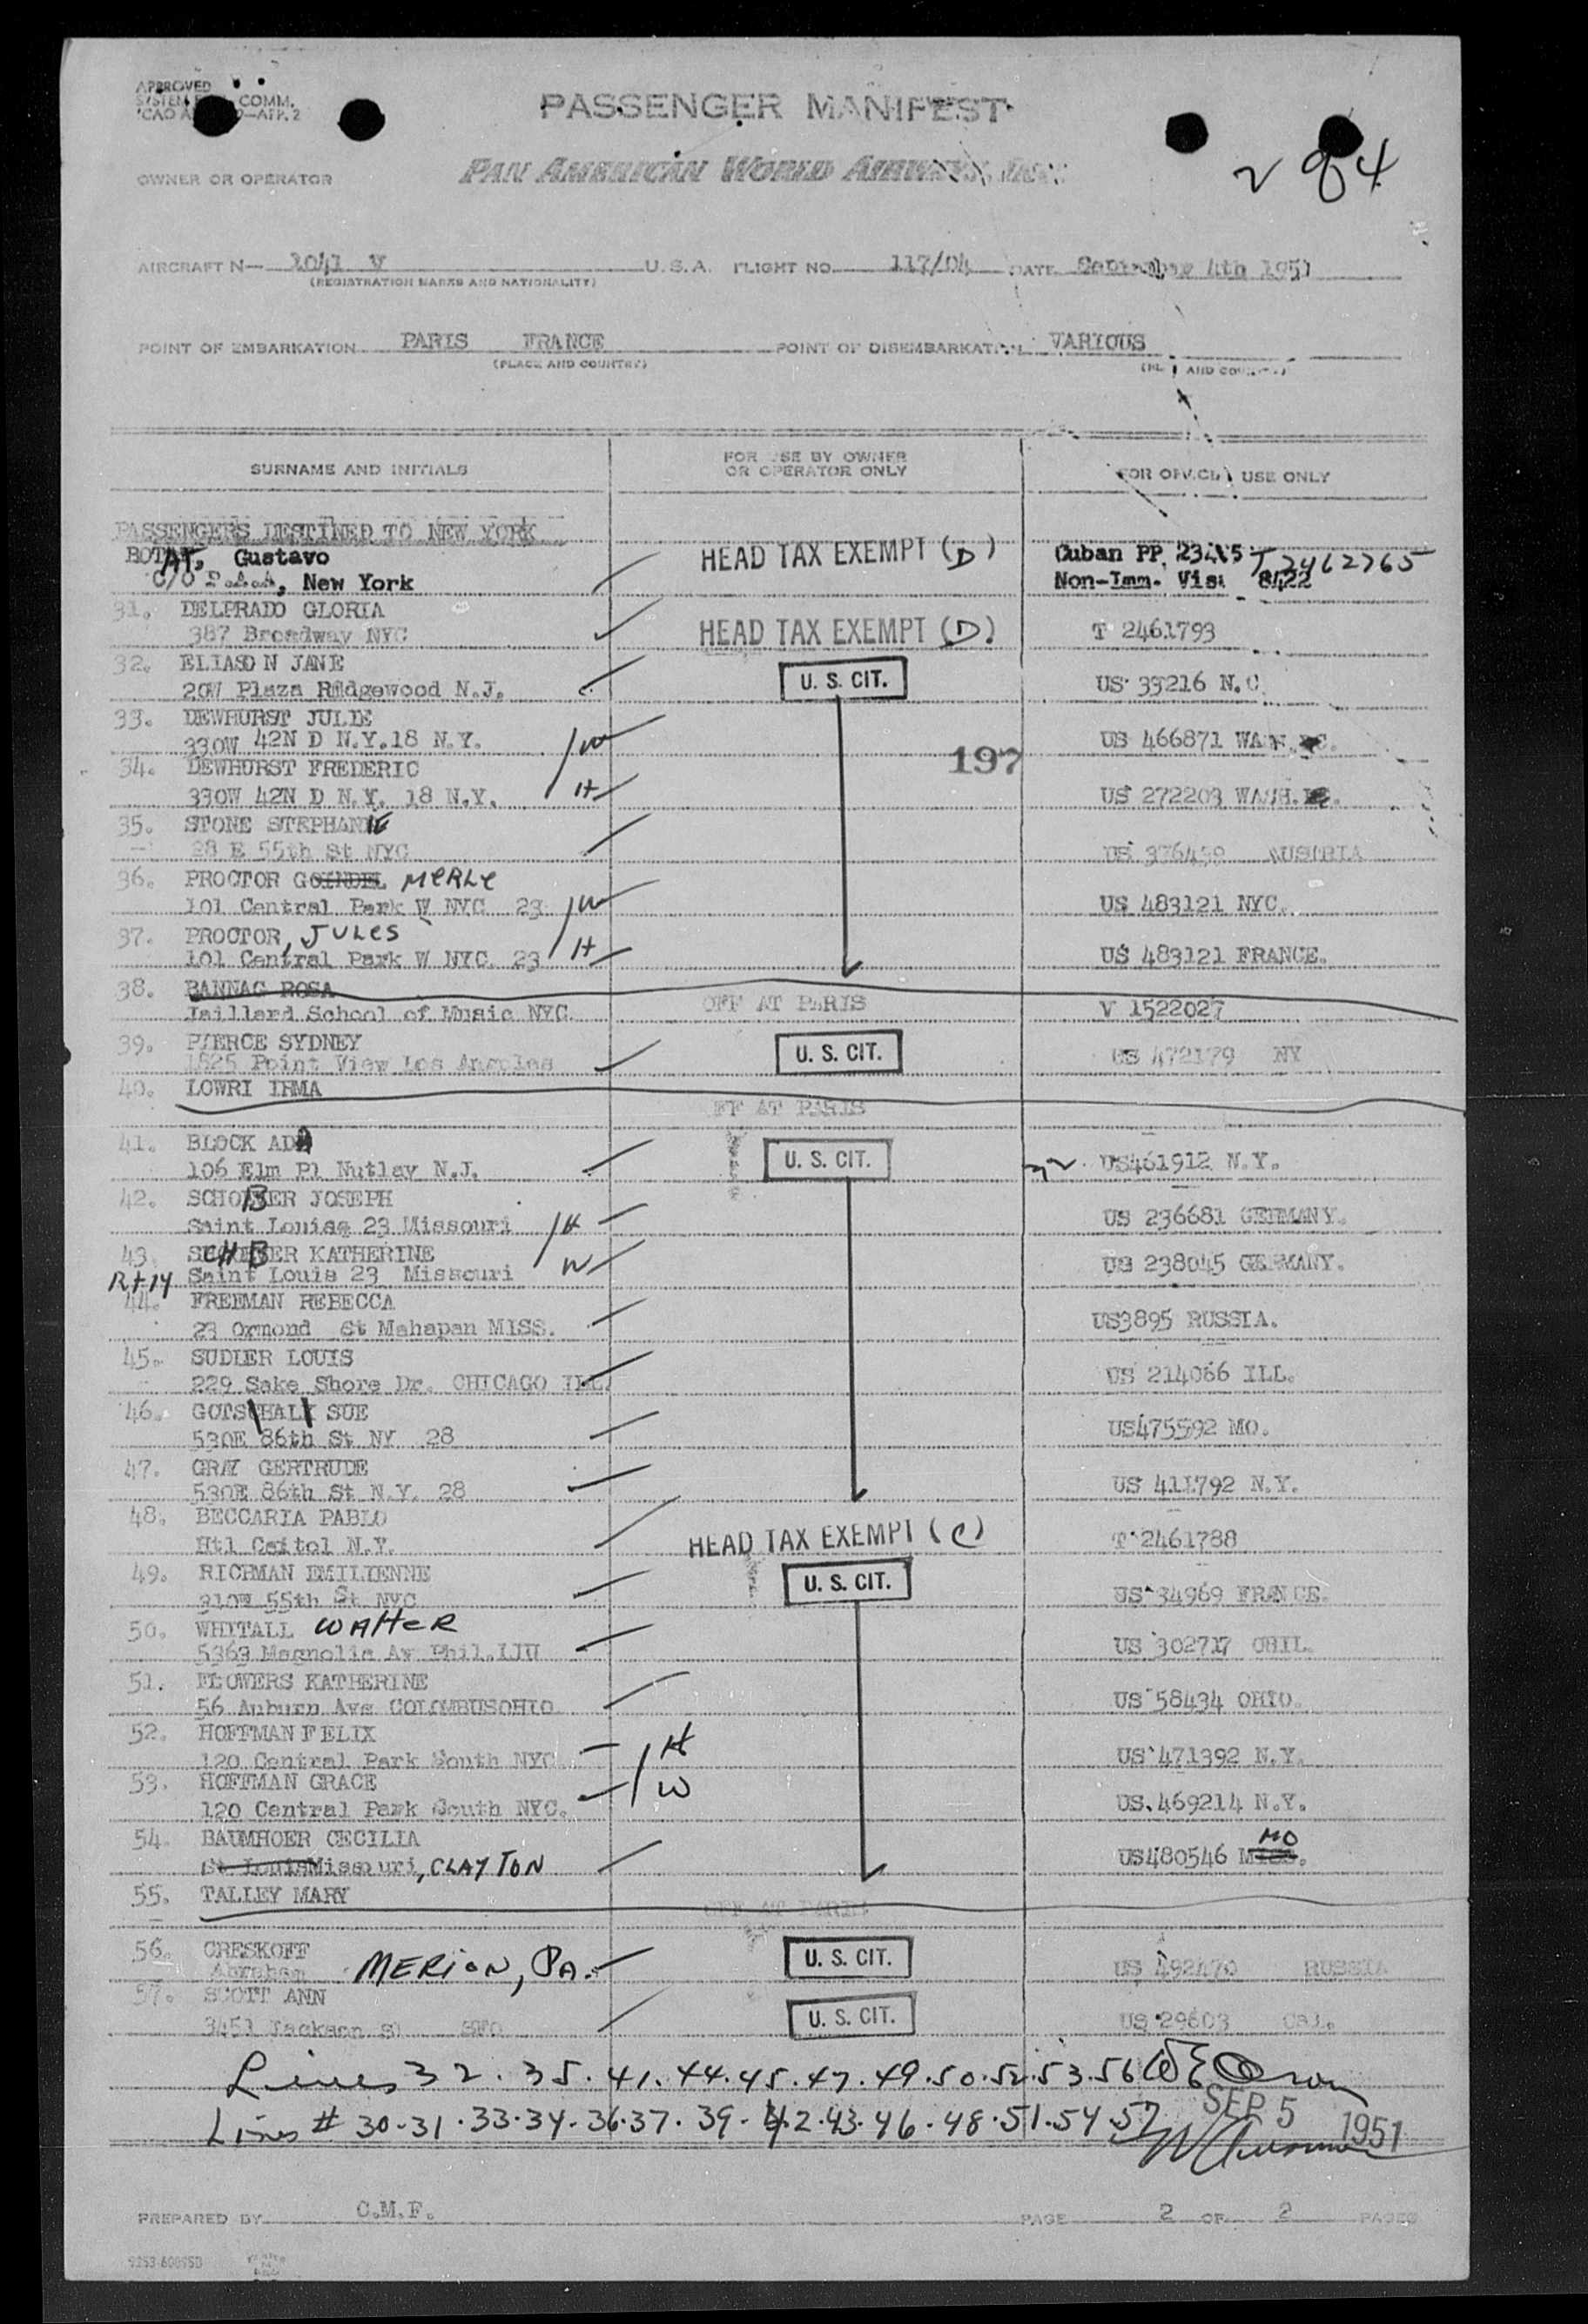 APPROVED
COMM.
PASSENGER MANIFEST
PAN AMERICAN WORLD AIRWAYS, INC.
OWNER OR OPERATOR
2 of 4
AIRCRAFT N— 1041 V U.S.A. FLIGHT NO. 117/04 DATE September 4th 1951
(REGISTRATION MARKS AND NATIONALITY)
POINT OF EMBARKATION PARIS FRANCE POINT OF DISEMBARKATION VARIOUS
(PLACE AND COUNTRY) AND
SURNAME AND INITIALS FOR USE BY OWNER OR OPERATOR ONLY FOR OFFICIAL USE ONLY
PASSENGERS DESTINED TO NEW YORK
Gustavo HEAD TAX EXEMPT (D) Cuban PP. T 2462765
C/O P.A.A, New York Non-Imm. Visa 8422
31. DELPRADO GLORIA
387 Broadway NYC HEAD TAX EXEMPT (D) T 2461793
32. ELIASON JANE
20W Plaza Ridgewood N.J. U. S. CIT. US 33216 N.C.
33. DEWHURST JULIE
330W 42N D N.Y.18 N.Y. W US 466871 WASH.DC.
34. DEWHURST FREDERIC 197
330W 42N D N.Y. 18 N.Y. H US 272203 WASH.DC.
35. STONE STEPHANIE
28 E 55th St NYC US 376439 AUSTRIA
36. PROCTOR GOINDEL MERLE
101 Central Park W NYC 23 W US 483121 NYC.
37. PROCTOR, JULES
101 Central Park W NYC. 23 H US 483121 FRANCE.
38. BANNAC ROSA OFF AT PARIS
Jaillard School of Music NYC. V 1522027
39. PIERCE SYDNEY
1525 Point View Los Angeles U. S. CIT. US 472179 NY
40. LOWRI IRMA
FF AT PARIS
41. BLOCK ADA
106 Elm Pl Nutley N.J. U. S. CIT. US461912 N.Y.
42. SCHOBER JOSEPH
Saint Louise 23 Missouri H US 236681 GERMANY.
43. SCHOBER KATHERINE
Saint Louis 23 Missouri W US 238045 GERMANY.
44. FREEMAN REBECCA
23 Ormond St Mahapan MISS. US3895 RUSSIA.
45. SUDLER LOUIS
229 Sake Shore Dr. CHICAGO ILL. US 214066 ILL.
46. GOTSCHALK SUE
530E 86th St NY 28 US475592 MO.
47. GRAY GERTRUDE
530E 86th St N.Y. 28 US 411792 N.Y.
48. BECCARIA PABLO
Htl Caitol N.Y. HEAD TAX EXEMPT (C) T 2461788
49. RICHMAN EMILIENNE
310W 55th St NYC U. S. CIT. US 34969 FRANCE.
50. WHITALL WALTER
5363 Magnolia Av Phil. US 302717
51. FLOWERS KATHERINE
56 Auburn Ave COLOMBUSOHIO US 58434 OHIO.
52. HOFFMAN FELIX H
120 Central Park South NYC US 471392 N.Y.
53. HOFFMAN GRACE W
120 Central Park South NYC. US.469214 N.Y.
54. BAUMHOER CECILIA MO
St LouisMissouri, CLAYTON US480546 MISS.
55. TALLEY MARY
OFF AT PARIS
56. CRESKOFF
Abraham MERION, PA. U. S. CIT. US 492470 RUSSIA
57. SCOTT ANN
3451 Jackson St SFO U. S. CIT. US 29603 CAL.
Lines 32. 35. 41. 44. 45. 47. 49. 50. 52. 53. 56
SEP 5 1951
Lines # 30-31-33-34-36-37. 39-42-43-46-48-51-54-57
PREPARED BY C.M.F. PAGE 2 OF 2 PAGES